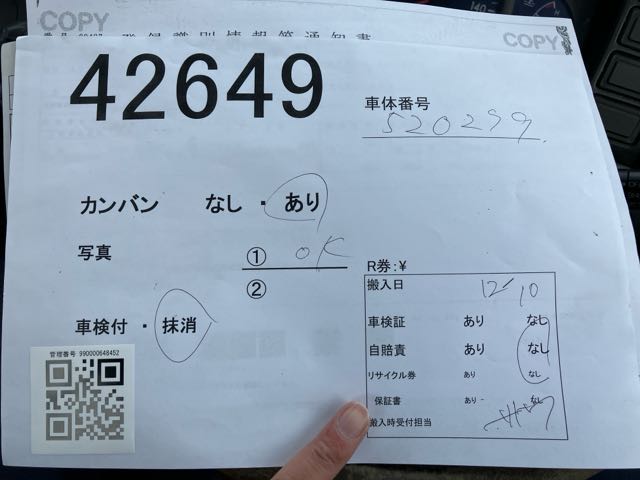 COPY
登録識別情報等通知書
COPY
42649
車体番号
520299
カンバン なし ・ あり
写真 ① OK
②
R券:¥
搬入日 12/10
車検付 ・ 抹消
車検証 あり なし
自賠責 あり なし
リサイクル券 あり なし
保証書 あり なし
搬入時受付担当
管理番号 990000648452